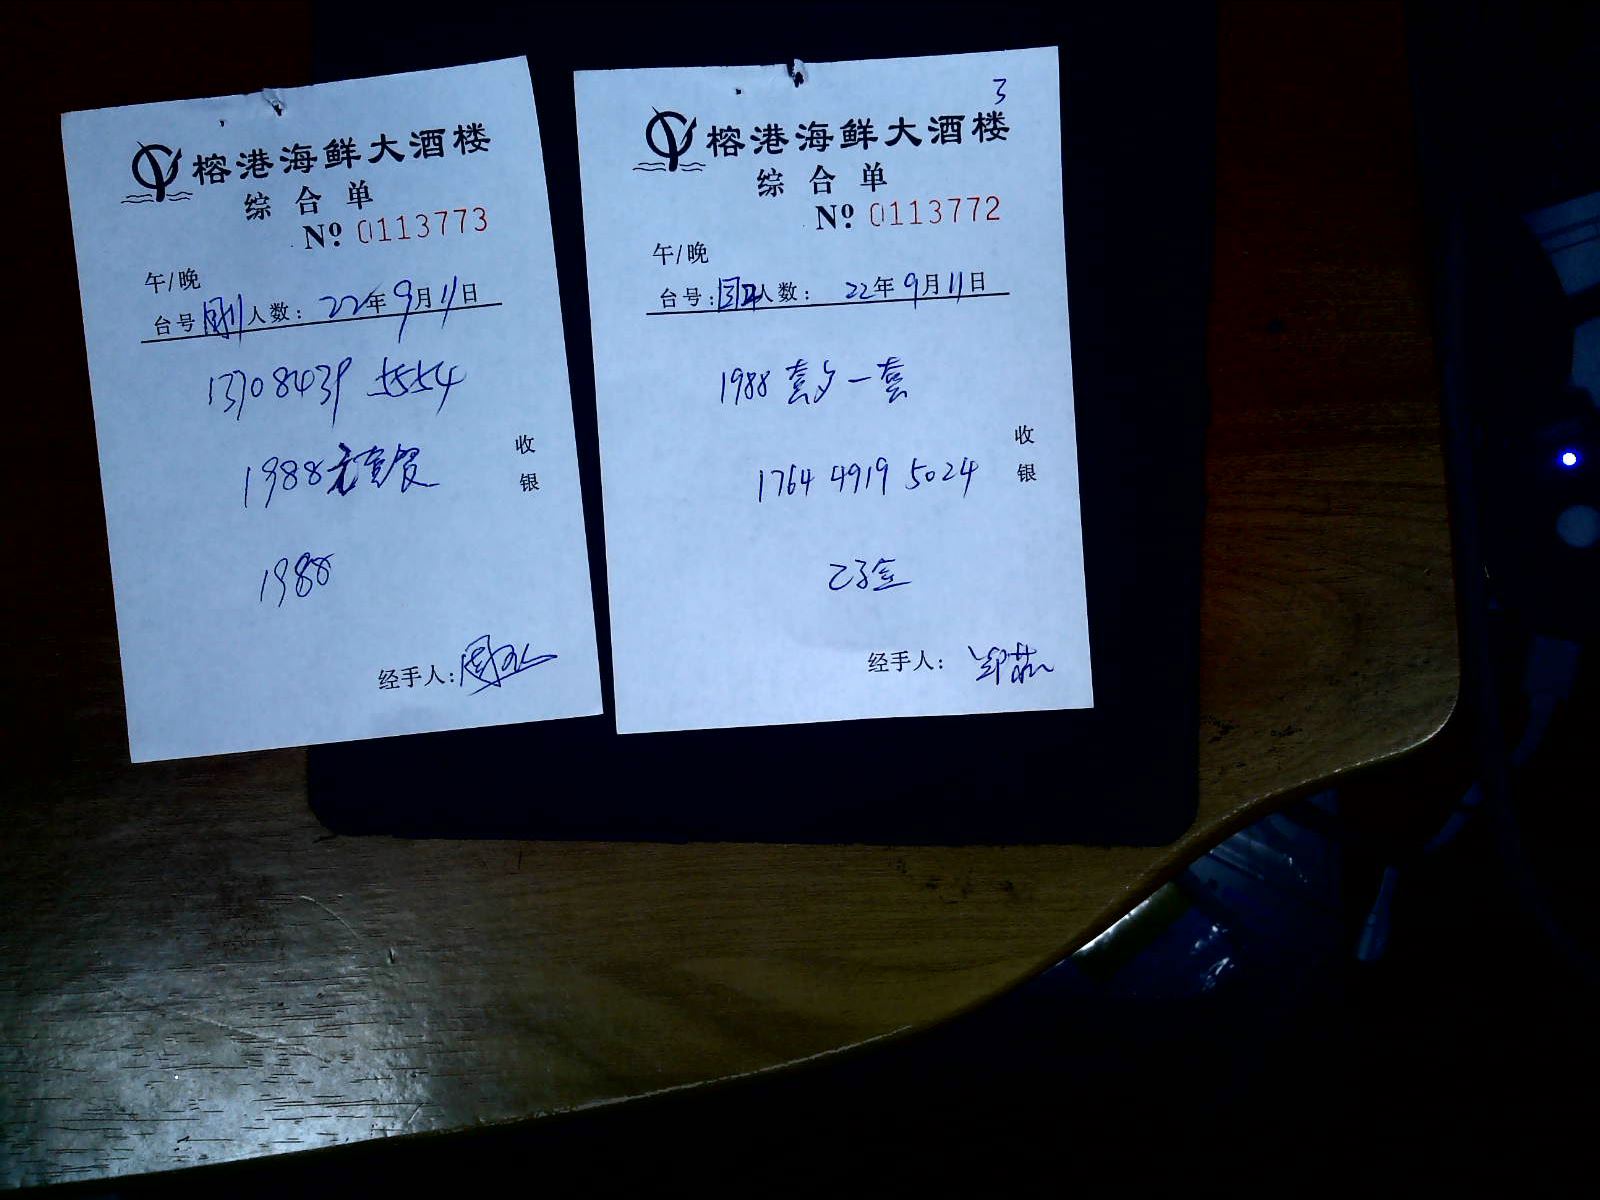 榕港海鲜大酒楼
综合单
Nº 0113773
午/晚
台号 人数: 22年9月11日
13708439 5554
1988元套餐
收银
1988
经手人:
3
榕港海鲜大酒楼
综合单
Nº 0113772
午/晚
台号: 人数: 22年9月11日
1988 套夕一套
收银
1764 4919 5024
经手人: